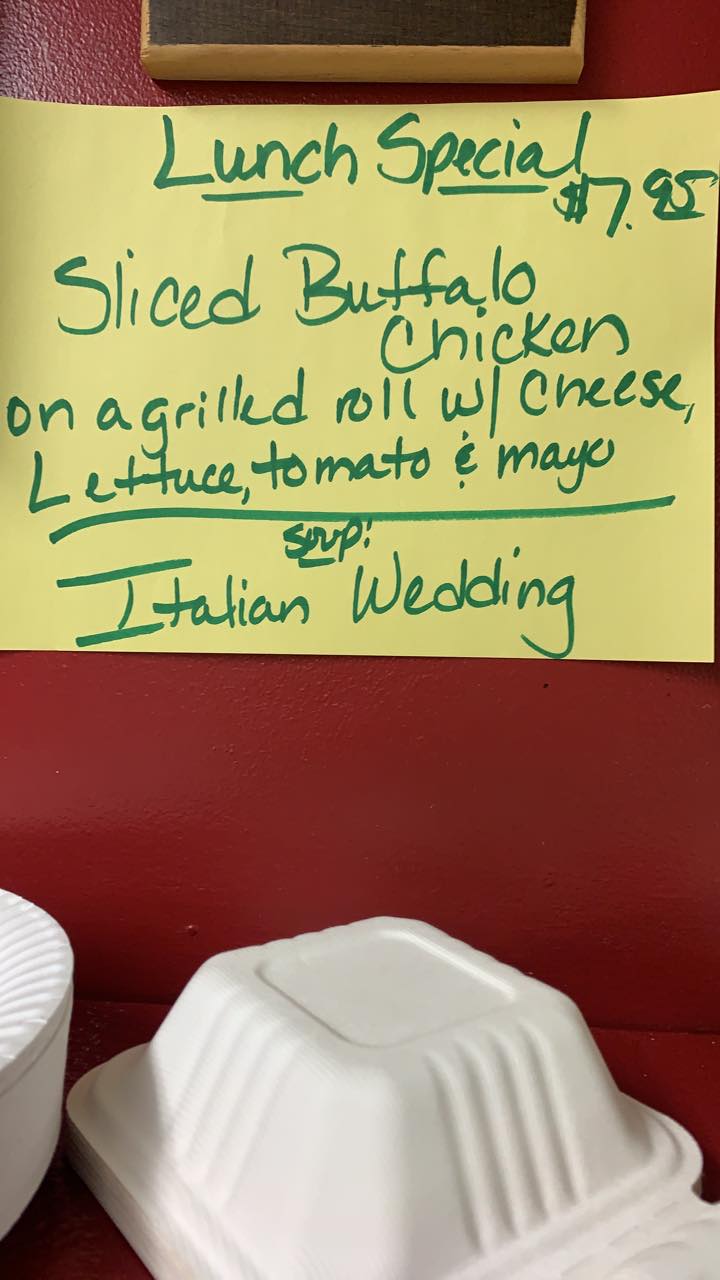 Lunch Special
$7.95
Sliced Buffalo
Chicken
on a grilled roll w/ Cheese,
Lettuce, tomato & mayo
Soup:
Italian Wedding